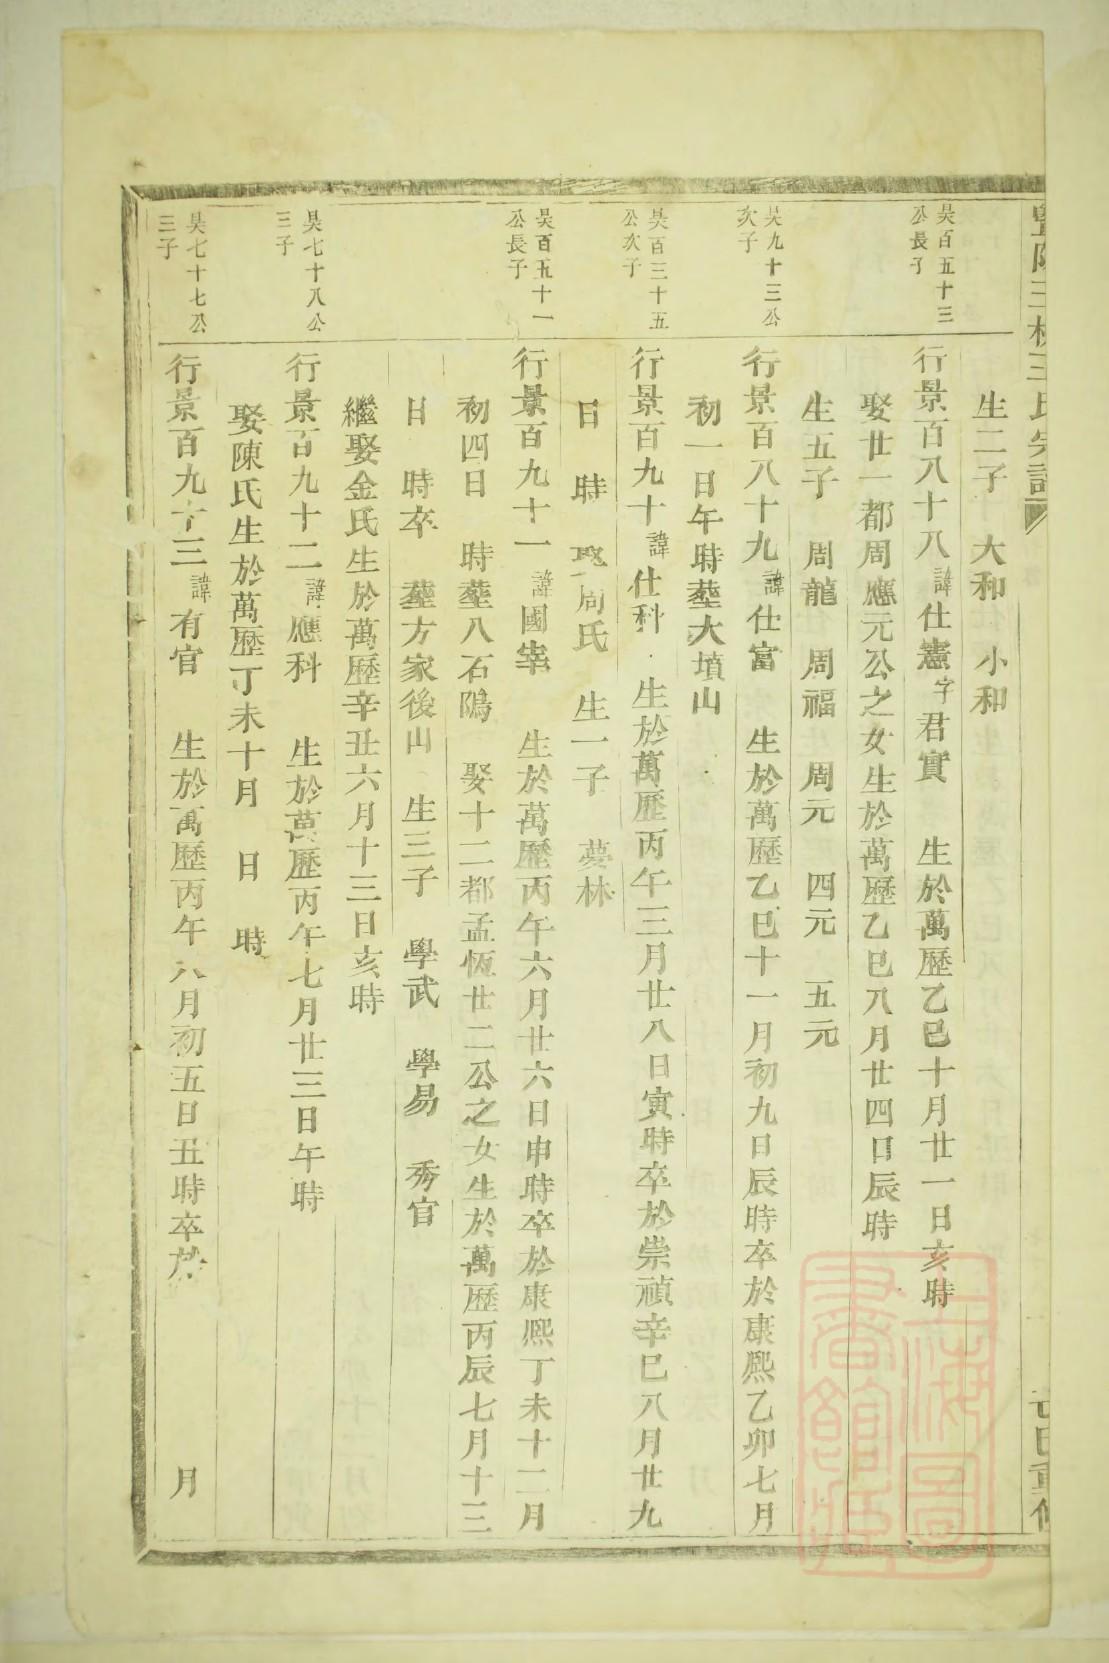 生二子 大和 小和
昊百五十三
公長子
行景百八十八諱仕憲字君實 生於萬歷乙巳十月廿一日亥時
娶廿一都周應元公之女生於萬歷乙巳八月廿四日辰時
生五子 周龍 周福 周元 四元 五元
昊九十三公
次子
行景百八十九諱仕富 生於萬歷乙巳十一月初九日辰時卒於康熙乙卯七月
初一日午時塟大墳山
昊百三十五
公次子
行景百九十諱仕科 生於萬歷丙午三月廿八日寅時卒於崇禎辛巳八月廿九
日 時 娶周氏 生一子 夢林
昊百五十一
公長子
行景百九十一諱國宰 生於萬歷丙午六月廿六日申時卒於康熙丁未十二月
初四日 時塟八石隝 娶十二都孟恆廿二公之女生於萬歷丙辰七月十三
日 時卒 塟方家後山 生三子 學武 學易 秀官
繼娶金氏生於萬歷辛丑六月十三日亥時
昊七十八公
三子
行景百九十二諱應科 生於萬歷丙午七月廿三日午時
娶陳氏生於萬歷丁未十月 日 時
昊七十七公
三子
行景百九十三諱有官 生於萬歷丙午六月初五日丑時卒於 月
上海圖書館藏